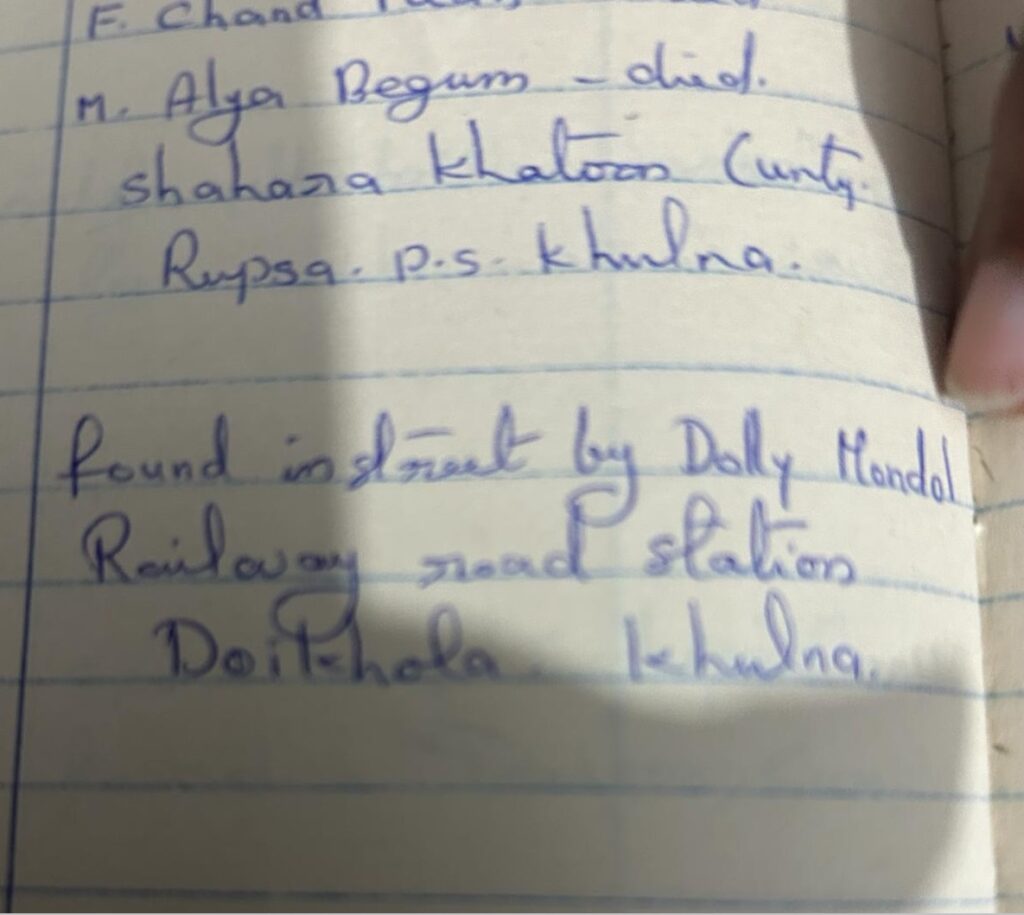 F. Chand
M. Alya Begum - died.
shahana khatoon (unty.
Rupsa. p.s. khulna.
found in street by Dolly Mondol
Railway road station
Doitkhola. khulna.